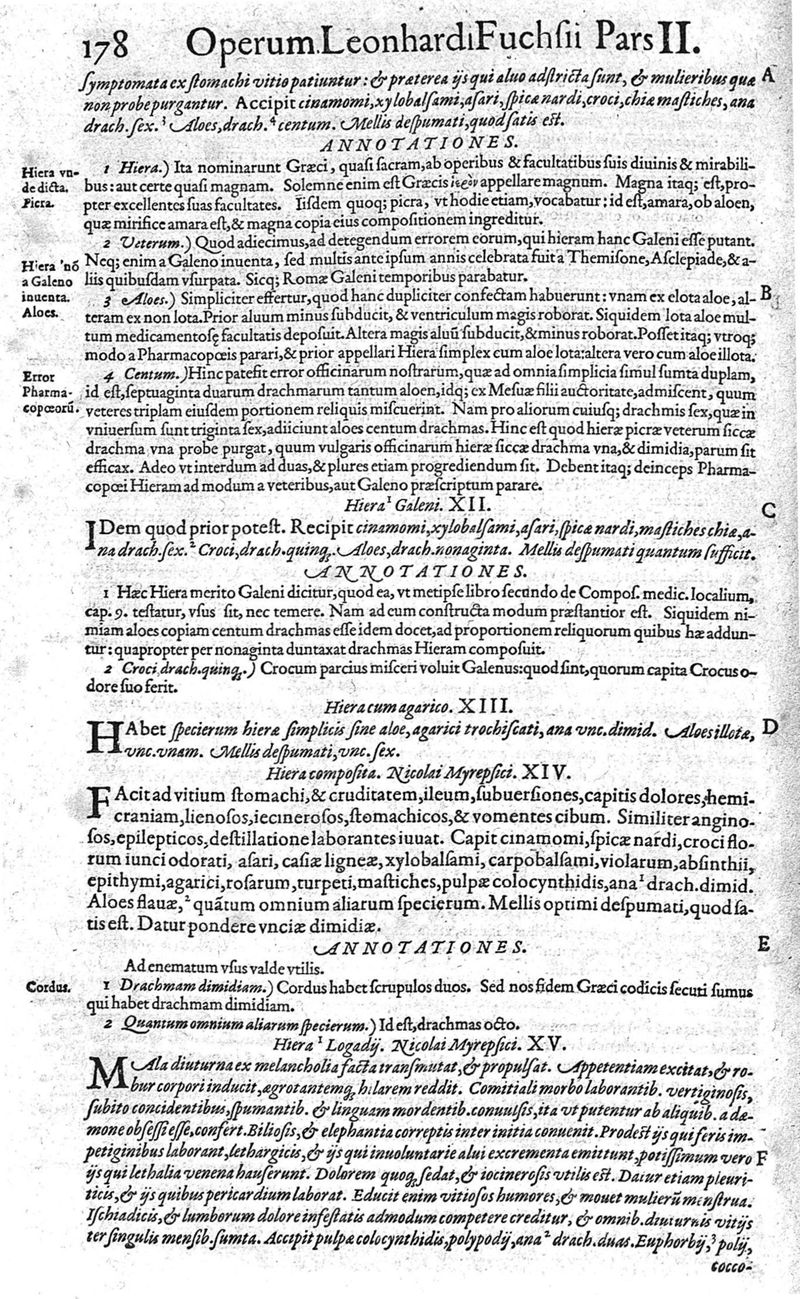 178 Operum Leonhardi Fuchsii Pars II.
symptomata ex stomachi vitio patiuntur: & præterea ijs qui aluo adstricta sunt, & mulieribus quæ A
non probe purgantur. Accipit cinamomi, xylobalsami, asari, spicæ nardi, croci, chiæ mastiches, ana
drach. sex. 3 Aloes, drach. 4 centum. Mellis despumati, quod satis est.
ANNOTATIONES.
Hiera vn-
de dicta.
Picra.
1 Hiera.) Ita nominarunt Græci, quasi sacram, ab operibus & facultatibus suis diuinis & mirabili-
bus: aut certe quasi magnam. Solemne enim est Græcis ἱερὸν appellare magnum. Magna itaq; est, pro-
pter excellentes suas facultates. Iisdem quoq; picra, vt hodie etiam, vocabatur: id est, amara, ob aloen,
quæ mirifice amara est, & magna copia eius compositionem ingreditur.
2 Veterum.) Quod adiecimus, ad detegendum errorem eorum, qui hieram hanc Galeni esse putant.
Hiera nō
a Galeno
inuenta.
Aloes.
Neq; enim a Galeno inuenta, sed multis ante ipsum annis celebrata fuit a Themisone, Asclepiade, & a-
liis quibusdam vsurpata. Sicq; Romæ Galeni temporibus parabatur.
3 Aloes.) Simpliciter effertur, quod hanc dupliciter confectam habuerunt: vnam ex elota aloe, al- B
teram ex non lota. Prior aluum minus subducit, & ventriculum magis roborat. Siquidem lota aloe mul-
tum medicamentosę facultatis deposuit. Altera magis aluū subducit, & minus roborat. Posset itaq; vtroq;
modo a Pharmacopœis parari, & prior appellari Hiera simplex cum aloe lota: altera vero cum aloe illota.
Error
Pharma-
copœorū.
4 Centum.) Hinc patefit error officinarum nostrarum, quæ ad omnia simplicia simul sumta duplam,
id est, septuaginta duarum drachmarum tantum aloen, idq; ex Mesuæ filii auctoritate, admiscent, quum
veteres triplam eiusdem portionem reliquis miscuerint. Nam pro aliorum cuiusq; drachmis sex, quæ in
vniuersum sunt triginta sex, adiiciunt aloes centum drachmas. Hinc est quod hieræ picræ veterum siccæ
drachma vna probe purgat, quum vulgaris officinarum hieræ siccæ drachma vna, & dimidia, parum sit
efficax. Adeo vt interdum ad duas, & plures etiam progrediendum sit. Debent itaq; deinceps Pharma-
copœi Hieram ad modum a veteribus, aut Galeno præscriptum parare.
Hiera 1 Galeni. XII. C
IDem quod prior potest. Recipit cinamomi, xylobalsami, asari, spicæ nardi, mastiches chiæ, a-
na drach. sex. 2 Croci, drach. quinq. Aloes, drach. nonaginta. Mellis despumati quantum sufficit.
ANNOTATIONES.
1 Hæc Hiera merito Galeni dicitur, quod ea, vt metipse libro secundo de Compos. medic. localium,
cap. 9. testatur, vsus sit, nec temere. Nam ad eum constructa modum præstantior est. Siquidem ni-
miam aloes copiam centum drachmas esse idem docet, ad proportionem reliquorum quibus hæ addun-
tur: quapropter per nonaginta duntaxat drachmas Hieram composuit.
2 Croci drach. quinq.) Crocum parcius misceri voluit Galenus: quod sint, quorum capita Crocus o-
dore suo ferit.
Hiera cum agarico. XIII.
HAbet specierum hieræ simplicis sine aloe, agarici trochiscati, ana vnc. dimid. Aloes illotæ, D
vnc. vnam. Mellis despumati, vnc. sex.
Hiera composita. Nicolai Myrepsici. XIV.
FAcit ad vitium stomachi, & cruditatem, ileum, subuersiones, capitis dolores, hemi-
craniam, lienosos, iecinerosos, stomachicos, & vomentes cibum. Similiter angino-
sos, epilepticos, destillatione laborantes iuuat. Capit cinamomi, spicæ nardi, croci flo-
rum iunci odorati, asari, casiæ ligneæ, xylobalsami, carpobalsami, violarum, absinthii,
epithymi, agarici, rosarum, turpeti, mastiches, pulpæ colocynthidis, ana 1 drach. dimid.
Aloes flauæ, 2 quātum omnium aliarum specierum. Mellis optimi despumati, quod sa-
tis est. Datur pondere vnciæ dimidiæ.
ANNOTATIONES. E
Ad enematum vsus valde vtilis.
Cordus.
1 Drachmam dimidiam.) Cordus habet scrupulos duos. Sed nos fidem Græci codicis secuti sumus
qui habet drachmam dimidiam.
2 Quantum omnium aliarum specierum.) Id est, drachmas octo.
Hiera 1 Logadij. Nicolai Myrepsici. XV.
MAla diuturna ex melancholia facta transmutat, & propulsat. Appetentiam excitat, & ro-
bur corpori inducit, ægrotantemq, hilarem reddit. Comitiali morbo laborantib. vertiginosis,
subito concidentibus, spumantib. & linguam mordentib. conuulsis, ita vt putentur ab aliquib. a dæ-
mone obsessi esse, confert. Biliosis, & elephantia correptis inter initia conuenit. Prodest ijs qui feris im-
petiginibus laborant, lethargicis, & ijs qui inuoluntarie alui excrementa emittunt, potissimum vero F
ijs qui lethalia venena hauserunt. Dolorem quoq, sedat, & iocinerosis vtilis est. Datur etiam pleuri-
ticis, & ijs quibus pericardium laborat. Educit enim vitiosos humores, & mouet mulierū menstrua.
Ischiadicis, & lumborum dolore infestatis admodum competere creditur, & omnib. diuturnis vitijs
ter singulis mensib. sumta. Accipit pulpæ colocynthidis, polypodij, ana 2 drach. duas. Euphorbij, 3 polij,
cocco-